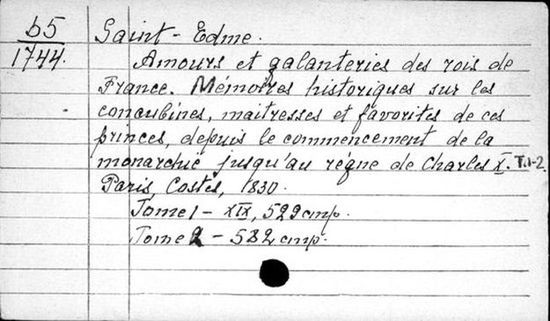 b5
1744.
Saint-Edme.
Amours et galanteries des rois de
France. Mémoires historiques sur les
concubines, maitresses et favorites de ces
princes, depuis le commencement de la
monarchie jusqu'au règne de Charles X. T.1-2
Paris, Costes, 1830.
Tome 1 - XIX, 529 cmp.
Tome 2 - 532 cmp.